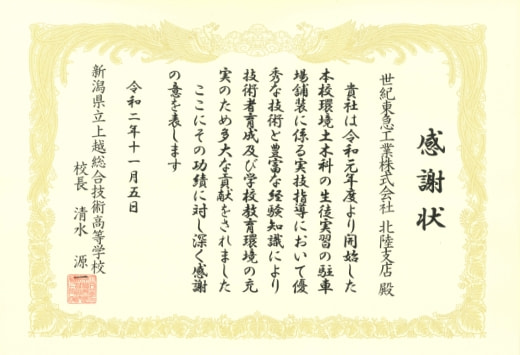 感謝状
世紀東急工業株式会社 北陸支店 殿
貴社は令和元年度より開始した
本校環境土木科の生徒実習の駐車
場舗装に係る実技指導において優
秀な技術と豊富な経験知識により
技術者育成及び学校教育環境の充
実のため多大な貢献をされました
ここにその功績に対し深く感謝
の意を表します
令和二年十一月五日
新潟県立上越総合技術高等学校
校長 清水 源一